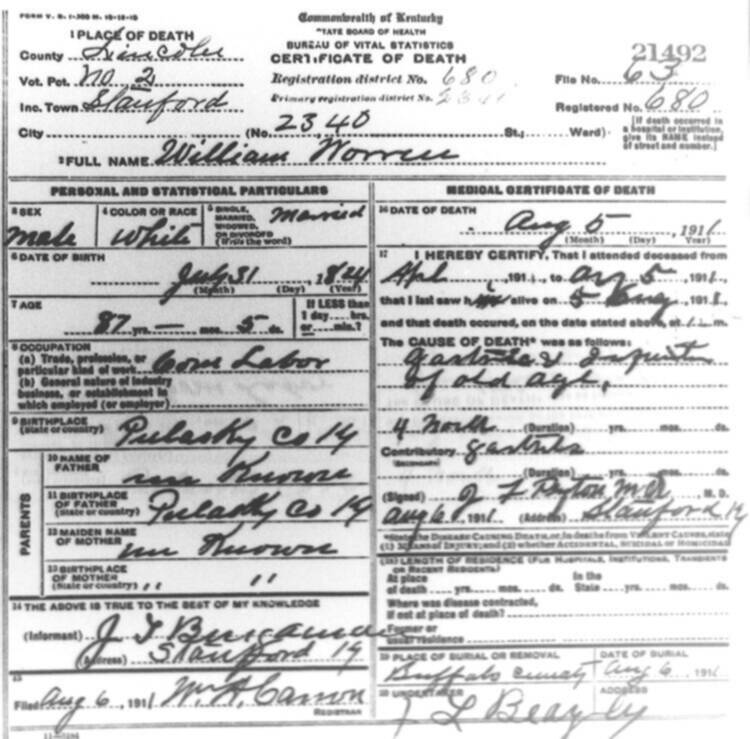 FORM V. S. 1-300 M. 10-18-10
Commonwealth of Kentucky
STATE BOARD OF HEALTH
BUREAU OF VITAL STATISTICS
CERTIFICATE OF DEATH
1 PLACE OF DEATH
County Lincoln
Vot. Pct. No. 2
Inc. Town Stanford
City
Registration district No. 680
Primary registration district No. 2341
(No. 2340 St.; Ward)
21492
File No. 63
Registered No. 680
[If death occurred in
a hospital or institution,
give its NAME instead
of street and number.]
2 FULL NAME William Worren
PERSONAL AND STATISTICAL PARTICULARS
3 SEX
Male
4 COLOR OR RACE
White
5 SINGLE,
MARRIED,
WIDOWED,
OR DIVORCED
(Write the word)
Married
6 DATE OF BIRTH
July 31, 1824
(Month) (Day) (Year)
7 AGE
87 yrs. — mos. 5 ds.
If LESS than
1 day hrs.
or min.?
8 OCCUPATION
(a) Trade, profession, or
particular kind of work Com Labor
(b) General nature of industry
business, or establishment in
which employed (or employer)
9 BIRTHPLACE
(State or country) Pulasky Co Ky
PARENTS
10 NAME OF
FATHER un Known
11 BIRTHPLACE
OF FATHER
(State or country) Pulasky Co Ky
12 MAIDEN NAME
OF MOTHER un Known
13 BIRTHPLACE
OF MOTHER
(State or country) " "
14 THE ABOVE IS TRUE TO THE BEST OF MY KNOWLEDGE
(Informant) J T
(Address) Stanford Ky
15
Filed Aug 6, 1911 Wm A Carson
REGISTRAR
MEDICAL CERTIFICATE OF DEATH
16 DATE OF DEATH
Aug 5, 1911
(Month) (Day) (Year)
17 I HEREBY CERTIFY, That I attended deceased from
Apl, 1911, to Aug 5, 1911,
that I last saw him alive on 5 Aug, 1911,
and that death occured, on the date stated above, at 1 m.
The CAUSE OF DEATH* was as follows:
Gastritis &
of old age,
4 Month (Duration) yrs. mos. ds.
Contributory gastritis
(SECONDARY)
(Duration) yrs. mos. ds.
(Signed) J T Peyton M D, M. D.
Aug 6, 1911 (Address) Stanford Ky
*State the DISEASE CAUSING DEATH, or, in deaths from VIOLENT CAUSES, state
(1) MEANS OF INJURY; and (2) whether ACCIDENTAL, SUICIDAL or HOMICIDAL
18 LENGTH OF RESIDENCE (FOR HOSPITALS, INSTITUTIONS, TRANSIENTS
OR RECENT RESIDENTS)
At place
of death yrs. mos. ds.
In the
State yrs. mos. ds.
Where was disease contracted,
if not at place of death?
Former or
usual residence
19 PLACE OF BURIAL OR REMOVAL
Buffalo
DATE OF BURIAL
Aug 6, 1911
20 UNDERTAKER
J L Beazley
ADDRESS